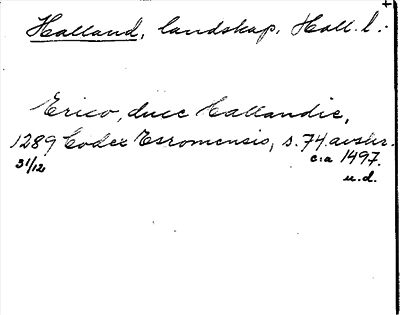 Halland, landskap. Hall. l.
Erico, duce Hallandie,
1289 Codex Esromensis, s. 74. avskr.
31/12 c:a 1497.
u.d.